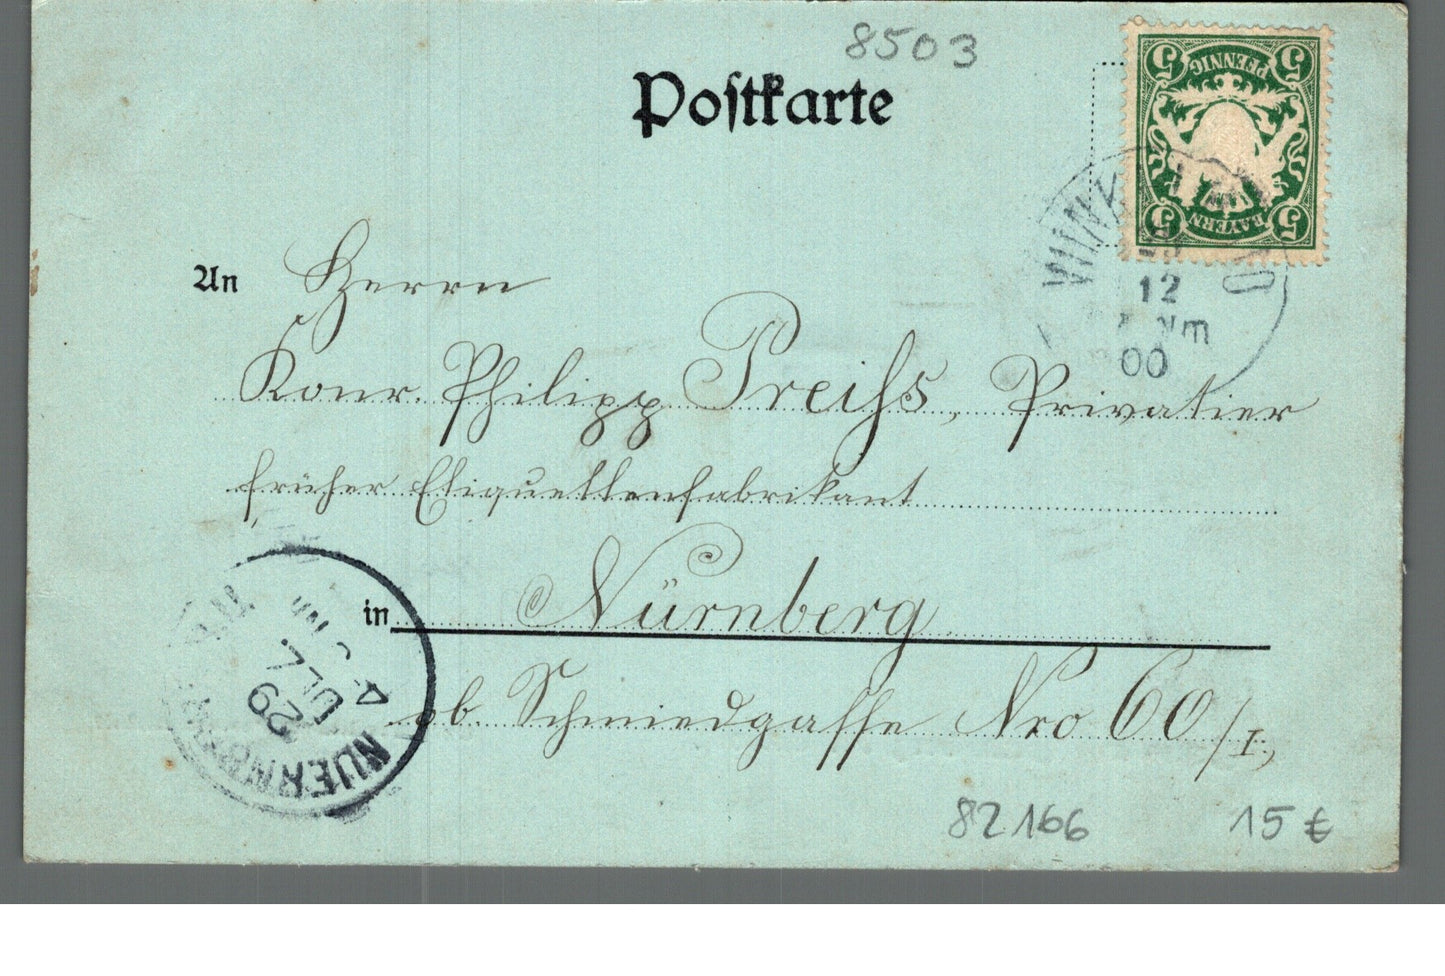 8503
Postkarte
5 PFENNIG 5
5 BAYERN 5
12
Nm
00
An Herrn
Konr. Philipp Preiss, Privatier
früher Etiquettenfabrikant
in Nürnberg
ob. Schmiedgasse Nro 60/I.,
29
JUL
4-5 Nm
NUERNBERG
82166
15 €